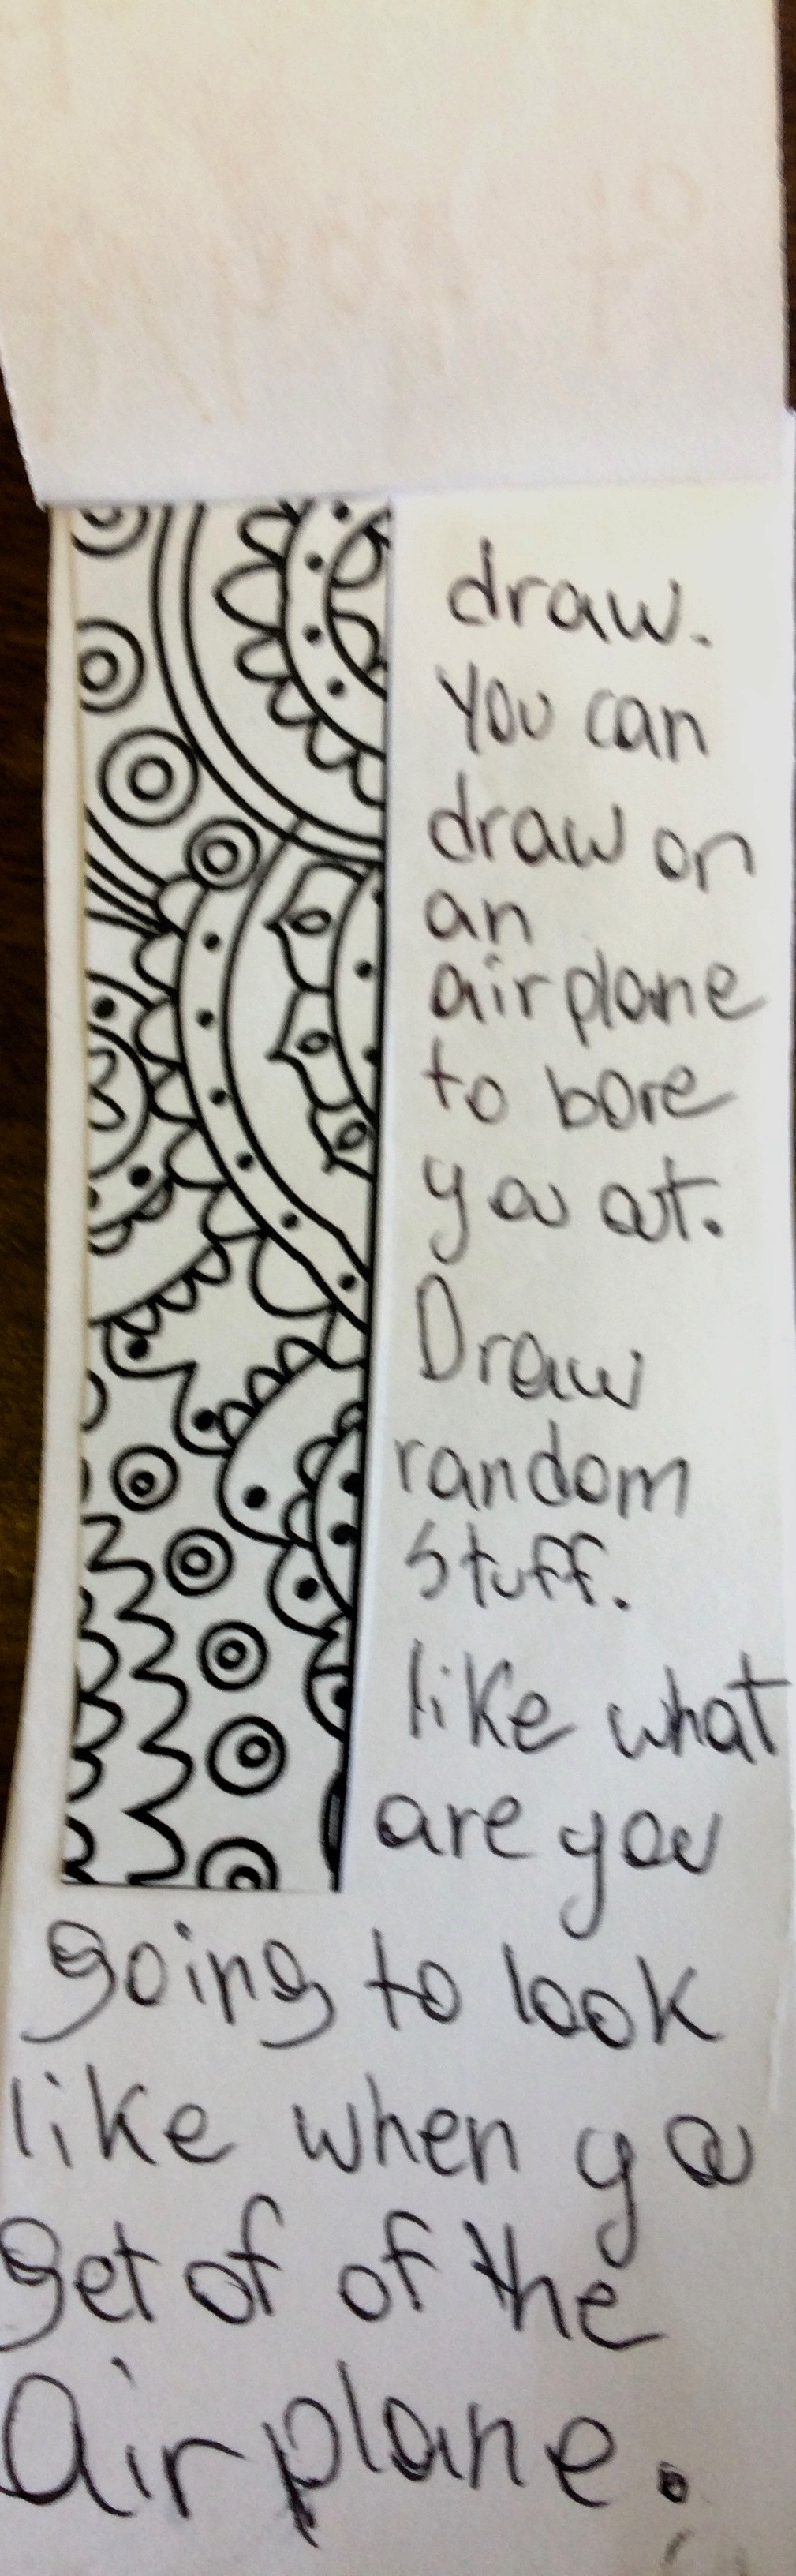 draw.
you can
draw on
an
airplane
to bore
you out.
Draw
random
stuff.
like what
are you
going to look
like when you
get of of the
airplane.